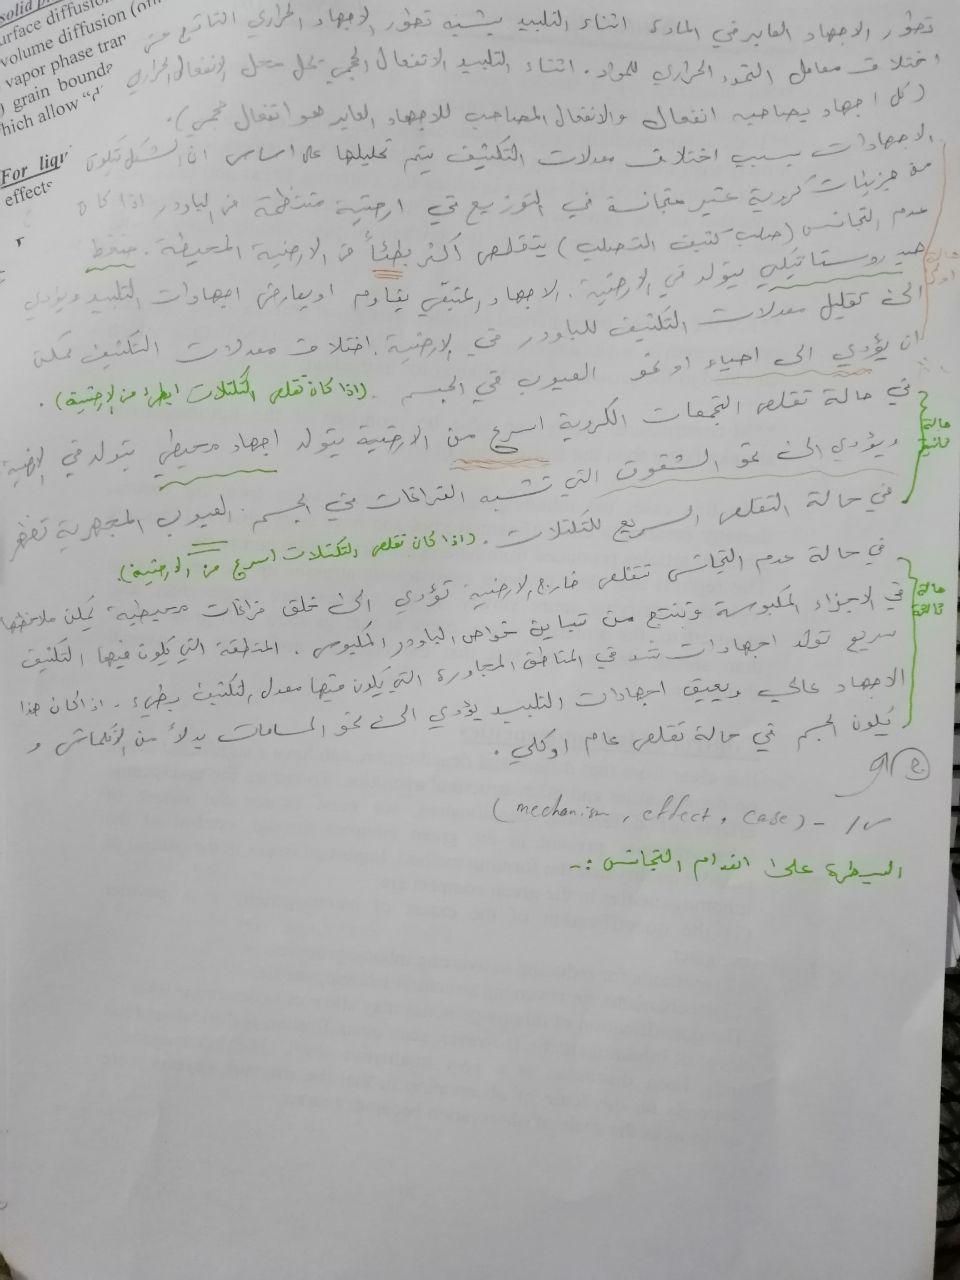 solid p
urface diffusion
volume diffusion (or
vapor phase tran
) grain bounda
hich allow "d
For liqu
effects
تطور الاجهاد العابر في المادة اثناء التلبيد يشبه تطور الاجهاد الحراري الناتج من
اختلاف معامل التمدد الحراري للمواد. اثناء التلبيد الانفعال الحجمي يحل محل الانفعال الحراري
(كل اجهاد يصاحبه انفعال والانفعال المصاحب للاجهاد العابر هو انفعال حجمي).
الاجهادات بسبب اختلاف معدلات التكثيف يتم تحليلها على اساس ان الشكل يتكون
من جزيئات كروية غير متجانسة في التوزيع في ارضية منتظمة من الباودر اذا كان
عدم التجانس (صلب كثيف التصلب) يتقلص أكثر بطئاً من الارضية المحيطة. ضغط
هيدروستاتيكي يتولد في الارضية. الاجهاد المتبقي يقاوم او يعارض اجهادات التلبيد ويؤدي
الى تقليل معدلات التكثيف للباودر في الارضية. اختلاف معدلات التكثيف ممكن
ان يؤدي الى احياء او نمو العيوب في الجسم. (اذا كان تقلص التكتلات ابطئ من الارضية).
في حالة تقلص التجمعات الكروية اسرع من الارضية يتولد اجهاد محيطي يتولد في الارضية
ويؤدي الى نمو الشقوق التي تشبه الفراغات في الجسم. العيوب المجهرية تظهر
في حالة التقلص السريع للتكتلات. (اذا كان تقلص التكتلات اسرع من الارضية).
في حالة عدم التجانس تتقلص خارج الارضية تؤدي الى خلق فراغات محيطية يمكن ملاحظتها
في الاجزاء المكبوسة وتنتج من تباين خواص الباودر المكبوس. المنطقة التي يكون فيها التكثيف
سريع تولد اجهادات شد في المناطق المجاورة التي يكون فيها معدل التكثيف بطيء. اذا كان هذا
الاجهاد عالي ويعيق اجهادات التلبيد يؤدي الى نمو المسامات بدلاً من الانكماش و
يكون الجسم في حالة تقلص عام او كلي.
حالة اولى
حالة ثانية
حالة ثالثة
(mechanism, effect, case) -
السيطرة على انعدام التجانس :-